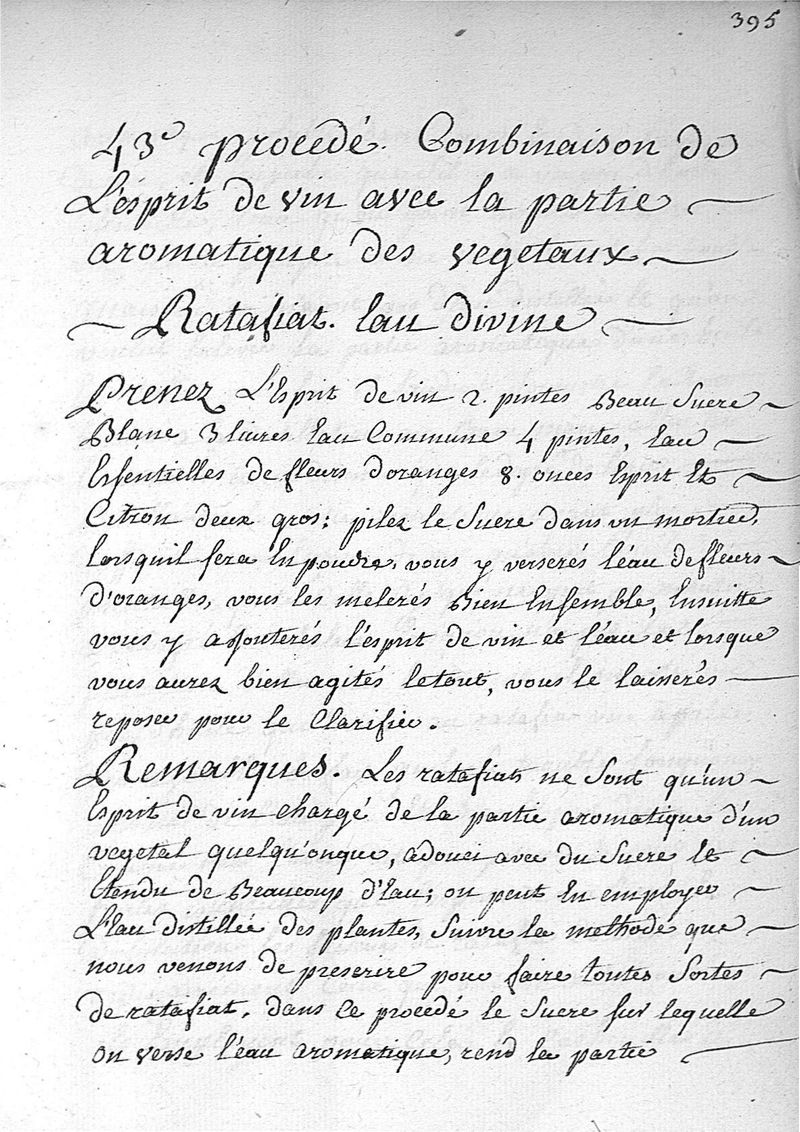 395
43e procedé. Combinaison de
L'esprit de vin avec la partie
aromatique des vegetaux
Ratafiat. Eau divine
Prenez L'Esprit de vin 2. pintes Beau Sucre
Blanc 3 livres Eau Commune 4 pintes, Eau
Essentielles de fleurs d'oranges 8. onces Esprit Et
Citron deux gros: pilez le Sucre dans un mortier,
lorsquil sera En poudre, vous y verserés l'éau de fleurs
d'oranges, vous les melerés Bien Ensemble, Ensuitte
vous y ajouterés l'esprit de vin et l'éau et lorsque
vous aurez bien agités le tout, vous le laisserés
reposer pour le Clarifier.
Remarques. Les ratafiats ne Sont qu'un
Esprit de vin chargé de la partie aromatique d'un
vegetal quelqu'onque, adouci avec du Sucre Et
Etendu de Beaucoup d'Eau; on peut En employer
L'Eau distillée des plantes, Suivre la methode que
nous venons de prescrire pour faire toutes Sortes
de ratafiat. dans Ce procedé le Sucre sur lequelle
on verse l'éau aromatique, rend la partie